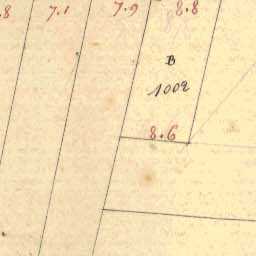 .8 7.1 7.9 8.8
B
1002
8.6